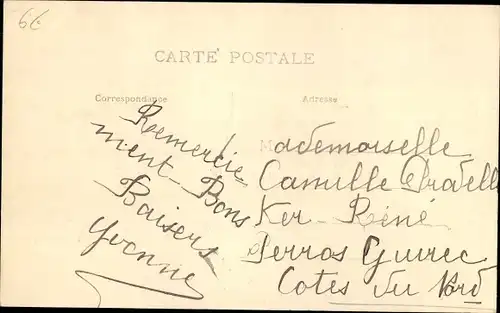 66
CARTE POSTALE
Correspondance
Adresse
Remercie
ment_ Bons
Baisers
Yvonne
Mademoiselle
Camille Pradelle
Ker_ René
Perros Guirec
Cotes du Nord